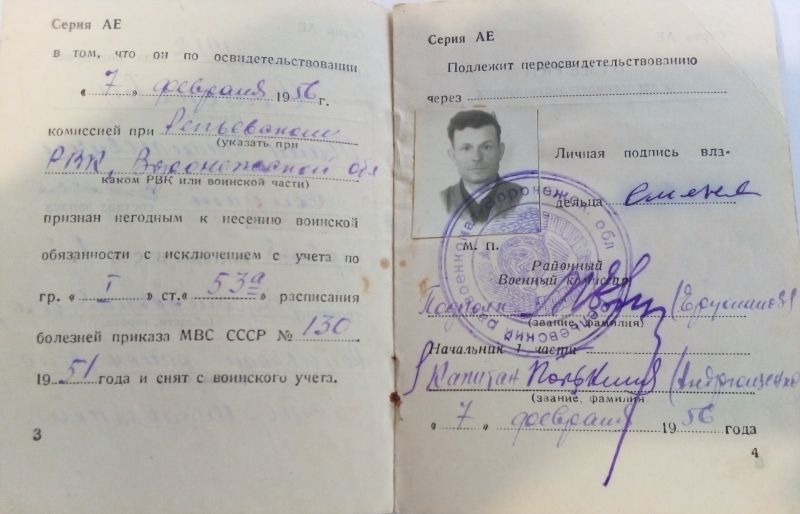 Серия АЕ
в том, что он по освидетельствовании
« 7 » февраля 1956 г.
комиссией при Репьевском
(указать при
РВК, Воронежской обл
каком РВК или воинской части)
признан негодным к несению воинской
обязанности с исключением с учета по
гр. « I » ст. « 53а » расписания
болезней приказа МВС СССР № 130
1951 года и снят с воинского учета.
3
Серия АЕ
Подлежит переосвидетельствованию
через
Личная подпись вла-
дельца
М. П.
Районный
Военный комиссар
(звание, фамилия)
Начальник 1 части
Капитан (Андрющенко)
(звание, фамилия
« 7 » февраля 1956 года
4